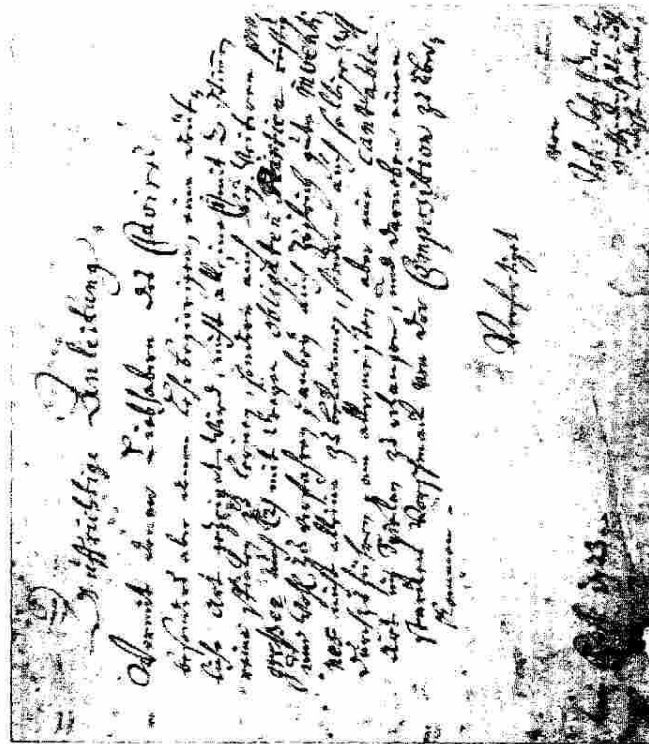 Auffrichtige Anleitung,
Wormit denen Liebhabern des Clavires,
besonders aber denen Lehrbegierigen, eine deüt-
liche Art gezeiget wird, nicht alleine (1) mit 2 Stimen
reine spielen zu lernen, sondern auch bey weiteren pro-
greßen auch (2) mit dreyen obligaten Partien richtig
und wohl zu verfahren, anbey auch zugleich gute inventio-
nes nicht alleine zu bekommen, sondern auch selbige wohl
durchzuführen, am allermeisten aber eine cantable
Art im Spielen zu erlangen, und darneben einen
starcken Vorschmack von der Composition zu über-
kommen.
Verfertiget
von
Joh: Seb: Bach
1723.